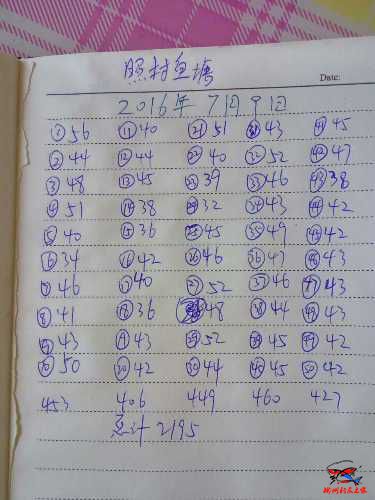 照村鱼塘
Date:
2016年7月9日
① 56 ⑪ 40 ㉑ 51 ㉛ 43 ㊶ 45
② 44 ⑫ 44 ㉒ 40 ㉜ 52 ㊷ 47
③ 48 ⑬ 45 ㉓ 39 ㉝ 46 ㊸ 38
④ 51 ⑭ 38 ㉔ 32 ㉞ 43 ㊹ 42
⑤ 40 ⑮ 36 ㉕ 45 ㉟ 49 ㊺ 42
⑥ 34 ⑯ 42 ㉖ 46 ㊱ 47 ㊻ 43
⑦ 46 ⑰ 40 ㉗ 52 ㊲ 46 ㊼ 43
⑧ 41 ⑱ 36 ㉘ 48 ㊳ 44 ㊽ 43
⑨ 43 ⑲ 43 ㉙ 52 ㊴ 45 ㊾ 42
⑩ 50 ⑳ 42 ㉚ 44 ㊵ 45 ㊿ 42
453 406 449 460 427
总计 2195